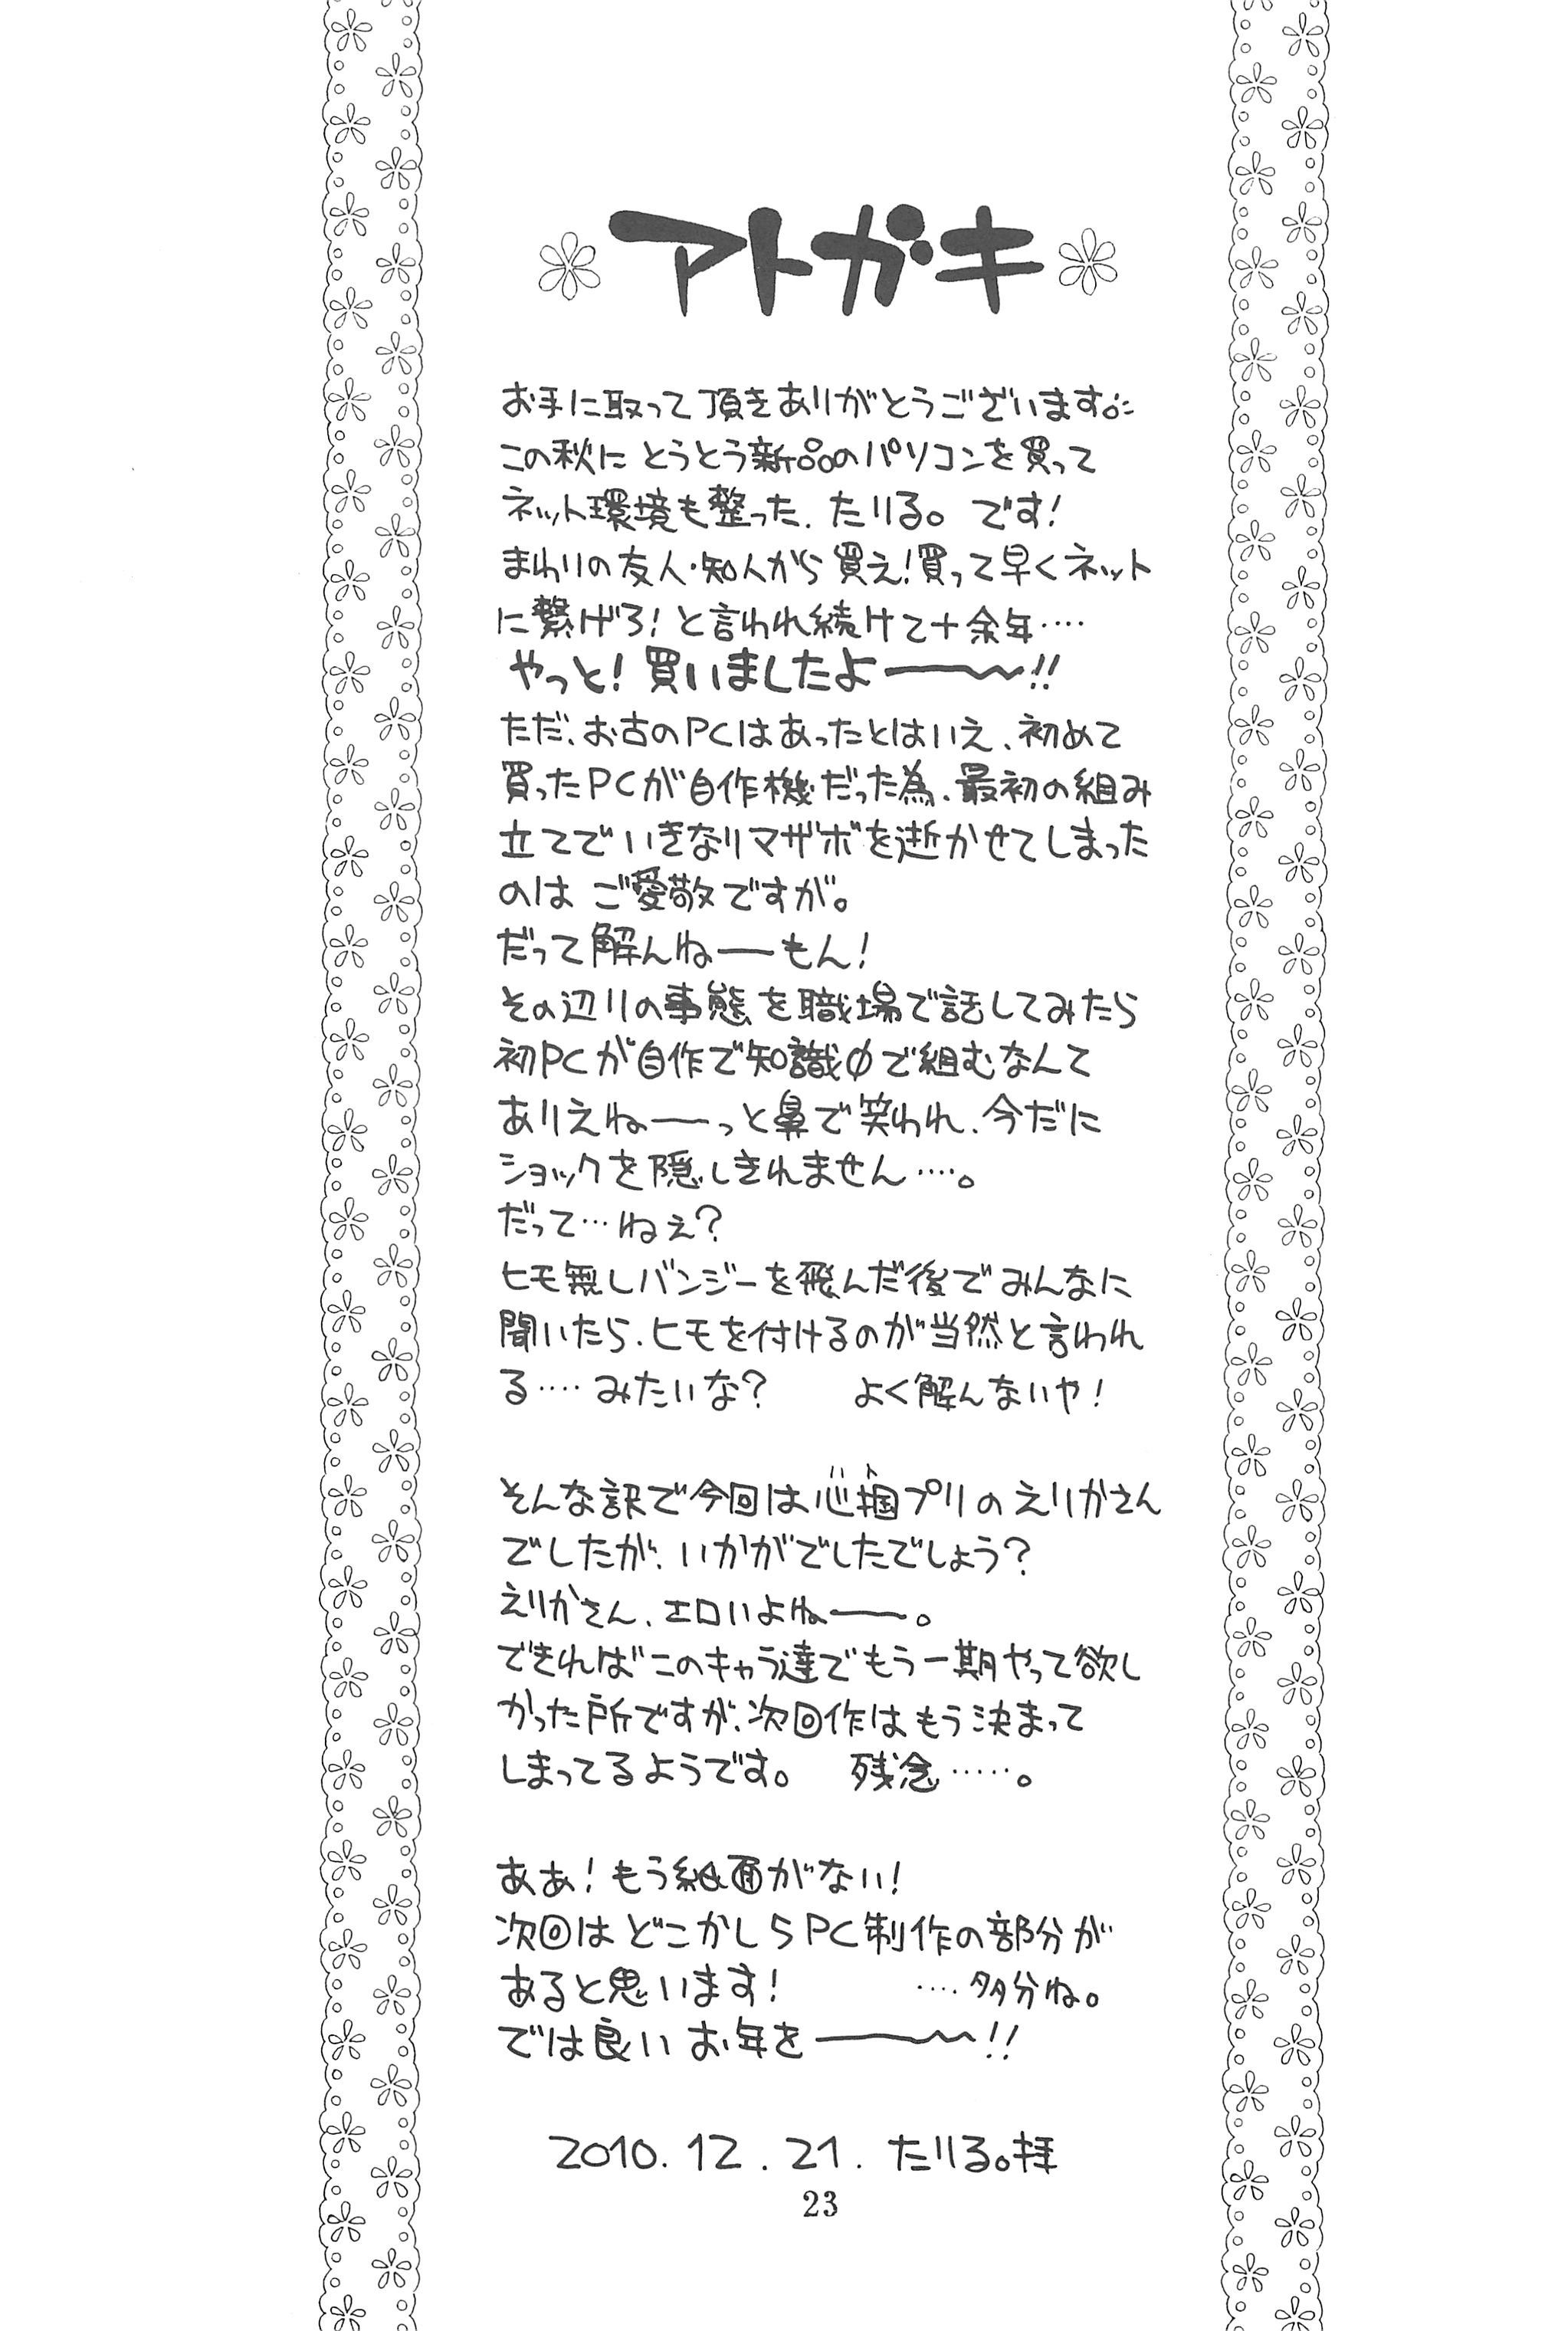 アトガキ
お手に取って頂きありがとうございます。
この秋にとうとう新品のパソコンを買って
ネット環境も整った、たりる。です!
まわりの友人・知人から買え!買って早くネット
に繋げろ!と言われ続けて十余年‥‥
やっと!買いましたよー〜!!
ただ、お古のPCはあったとはいえ、初めて
買ったPCが自作機だった為、最初の組み
立てでいきなりマザボを逝かせてしまった
のは ご愛敬ですが。
だって解んねーもん!
その辺りの事態を職場で話してみたら
初PCが自作で知識0で組むなんて
ありえねーっと鼻で笑われ、今だに
ショックを隠しきれません‥‥。
だって…ねぇ?
ヒモ無しバンジーを飛んだ後でみんなに
聞いたら、ヒモを付けるのが当然と言われ
る‥‥みたいな? よく解んないや!
ハト
そんな訳で今回は心掴プリのえりかさん
でしたが、いかがでしたでしょう?
えりかさん、エロいよねー。
できればこのキャラ達でもう一期やって欲し
かった所ですが、次回作はもう決まって
しまってるようです。 残念‥‥‥。
ああ!もう紙面がない!
次回はどこかしらPC制作の部分が
あると思います! ‥‥多分ね。
では良いお年をー〜!!
2010.12.21. たりる。拝
23